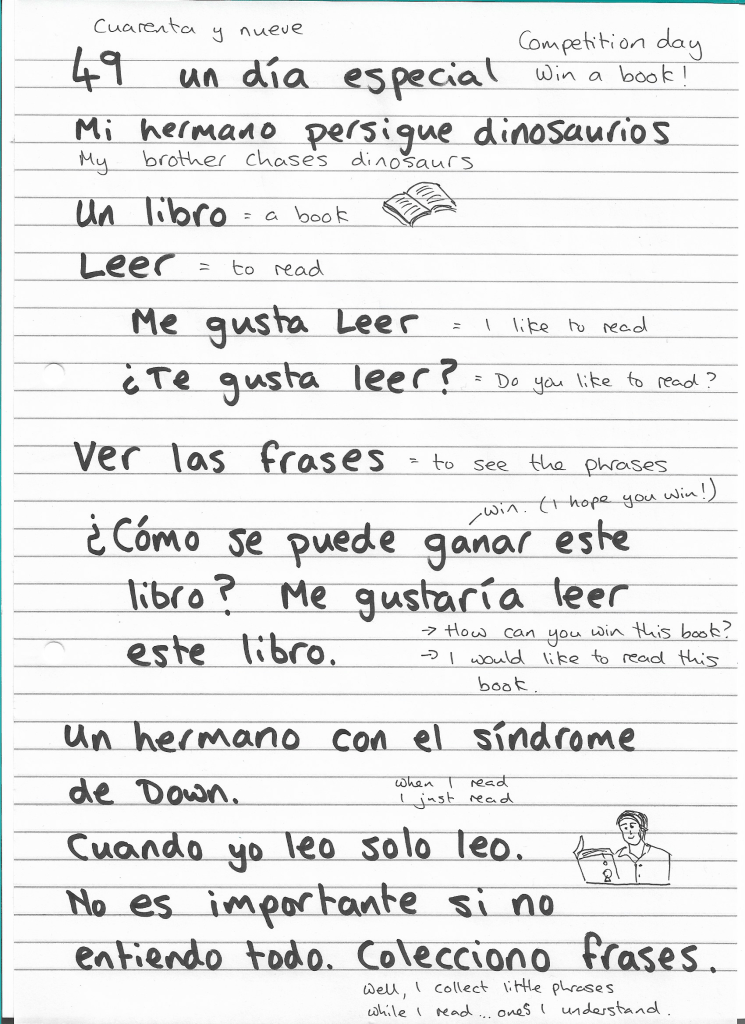 Cuarenta y nueve
49 un día especial
Competition day
Win a book!
Mi hermano persigue dinosaurios
My brother chases dinosaurs
Un libro = a book
Leer = to read
Me gusta Leer = I like to read
¿Te gusta leer? = Do you like to read?
Ver las frases = to see the phrases
win. (I hope you win!)
¿Cómo se puede ganar este
libro? Me gustaría leer
este libro.
→ How can you win this book?
→ I would like to read this
book.
Un hermano con el síndrome
de Down.
when I read
I just read
Cuando yo leo solo leo.
No es importante si no
entiendo todo. Colecciono frases.
Well, I collect little phrases
while I read... ones I understand.